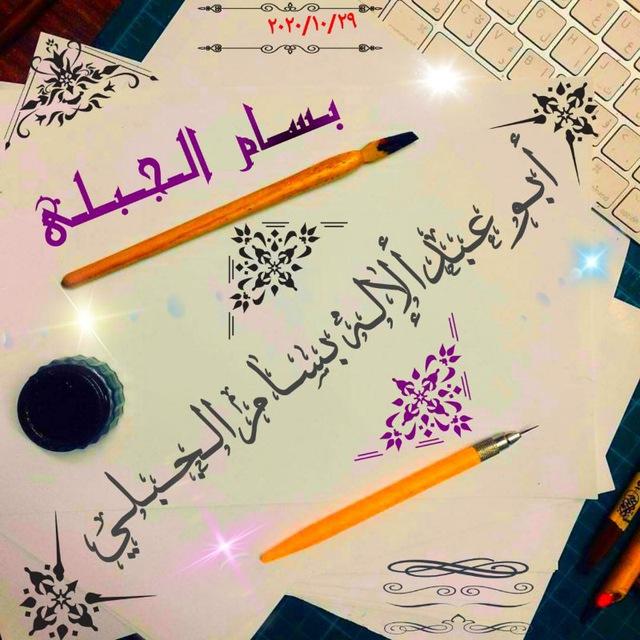 ٢٠٢٠/١٠/٢٩
بسام الجبلي
أبو عبدالإله بسام الجبلي